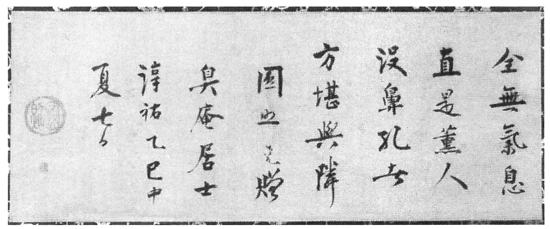 全無氣息
直是薰人
没鼻孔者
方堪與隣
圓照老贈
臭庵居士
淳祐乙巳中
夏七日